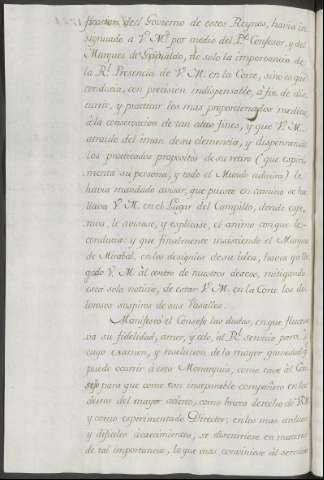 del Govierno de estos Reynos, havia in
sinuado a V. M. por medio del P.e Confesor, y del
Marques de Grimaldo, no solo la importancia de
la R.l Presencia de V. M. en la Corte, sino es que
conducia, con precision indispensable, à fin de dis
currir, y practicar los mas proporcionados medios
à la conservacion de tan altos fines, y que V. M.
atraido del iman de su clemencia, y dispensando
los practicados propositos de su retiro (que experi
menta su persona, y todo el Mundo admira) le
havia mandado avisar, que puesto en camino se ha
llava V. M. en el Lugar del Campillo, donde espe
rava, le avisase, y explicase, el animo con que le
conducia: y que finalmente insistiendo el Marques
de Mirabal, en los designios de su idea, havia
V. M. al centro de nuestros deseos, mitigando
esta sola noticia, de estar V. M. en la Corte los do
lorosos suspiros de sus Vasallos.
Manifestò el Consejo las dudas, en que fluctua
va su fidelidad, amor, y celo, al R.l servicio para
cuyo examen, y resolucion de la mayor gravedad q.e
puede ocurrir à esta Monarquia, como cave al Con
sejo para que como tan inseparable compañero en los
del mayor acierto, como brazo derecho de V. M.
y como experimentado Director, en los mas arduos
y dificiles acaecimientos, se discurriese en materia
de tal importancia, lo que mas conviniese al servicio